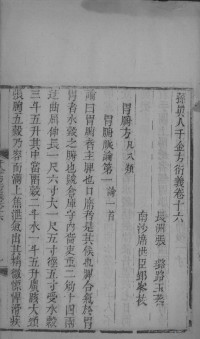 孫真人千金方衍義卷十六
長洲張 璐路玉著
南沙席世臣郢客校
胃腑方凡八類
胃腑脈論第一 論一首
論曰胃腑者主脾也口唇者是其候也脾合氣於胃
胃者水穀之腑也號倉庫守內嗇吏重二觔十四兩
迂曲屈伸長二尺六寸大一尺五寸徑五寸受水穀
三斗五升其中當留穀二斗水一斗五升廣胲大頸
張胸五穀乃容而滿上焦泄氣出其精微慓悍滑疾